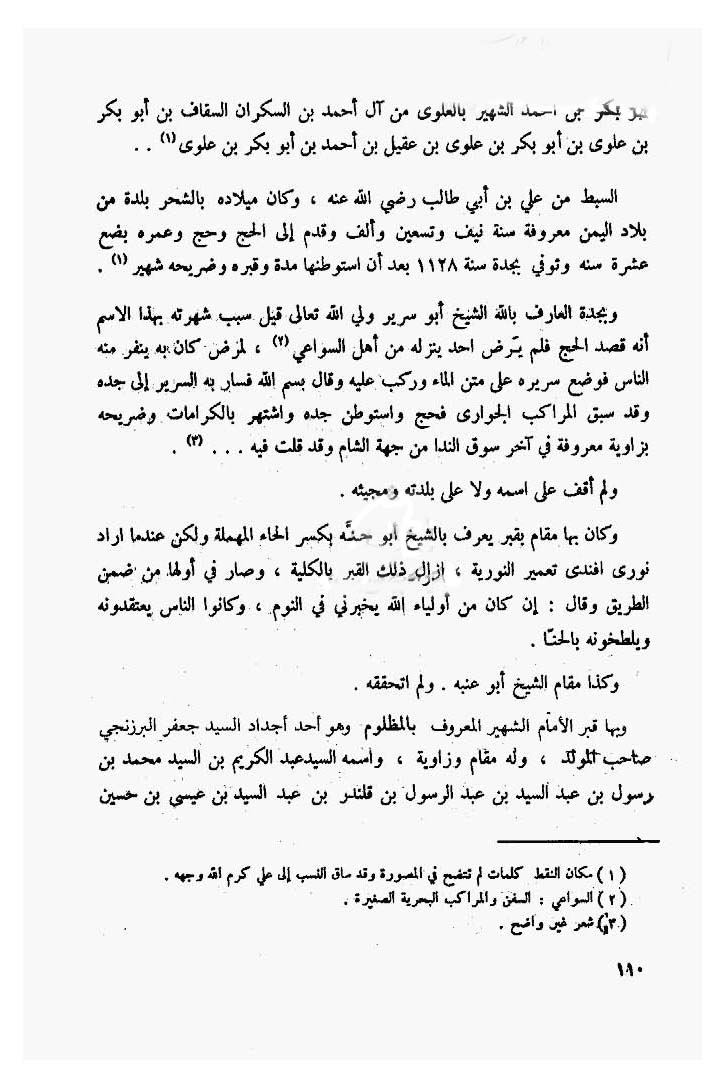 بكر بن احمد الشهير بالعلوى من آل أحمد بن السكران السقاف بن أبو بكر
بن علوى بن أبو بكر بن علوى بن عقيل بن أحمد بن أبو بكر بن علوى (١) . .
السبط من علي بن أبي طالب رضي الله عنه ، وكان ميلاده بالشحر بلدة من
بلاد اليمن معروفة سنة نيف وتسعين وألف وقدم إلى الحج وحج وعمره بضع
عشرة سنه وتوفي بجدة سنة ١١٢٨ بعد أن استوطنها مدة وقبره وضريحه شهير (١) .
وبجدة العارف بالله الشيخ أبو سرير ولي الله تعالى قيل سبب شهرته بهذا الاسم
أنه قصد الحج فلم يَرض احد ينزله من أهل السواعي (٢) ، لمرض كان به ينفر منه
الناس فوضع سريره على متن الماء وركب عليه وقال بسم الله فسار به السرير إلى جده
وقد سبق المراكب الجوارى فحج واستوطن جده واشتهر بالكرامات وضريحه
بزاوية معروفة في آخر سوق الندا من جهة الشام وقد قلت فيه . . . (٣) .
ولم أقف على اسمه ولا على بلدته ومجيئه .
وكان بها مقام بقبر يعرف بالشيخ أبو حنَّه بكسر الحاء المهملة ولكن عندما اراد
نورى افندى تعمير النورية ، ازال ذلك القبر بالكلية ، وصار في أولها من ضمن
الطريق وقال : إن كان من أولياء الله يخبرني في النوم ، وكانوا الناس يعتقدونه
ويلطخونه بالحنّا .
وكذا مقام الشيخ أبو عنبه . ولم اتحققه .
وبها قبر الأمام الشهير المعروف بالمظلوم وهو أحد أجداد السيد جعفر البرزنجي
صاحب المولد ، وله مقام وزاوية ، واسمه السيد عبد الكريم بن السيد محمد بن
رسول بن عبد السيد بن عبد الرسول بن قلندر بن عبد السيد بن عيسى بن حسين
(١) مكان النقط كلمات لم تتضح في المصورة وقد ساق النسب إلى علي كرم الله وجهه .
(٢) السواعي : السفن والمراكب البحرية الصغيرة .
(٣) شعر غير واضح .
١١٠